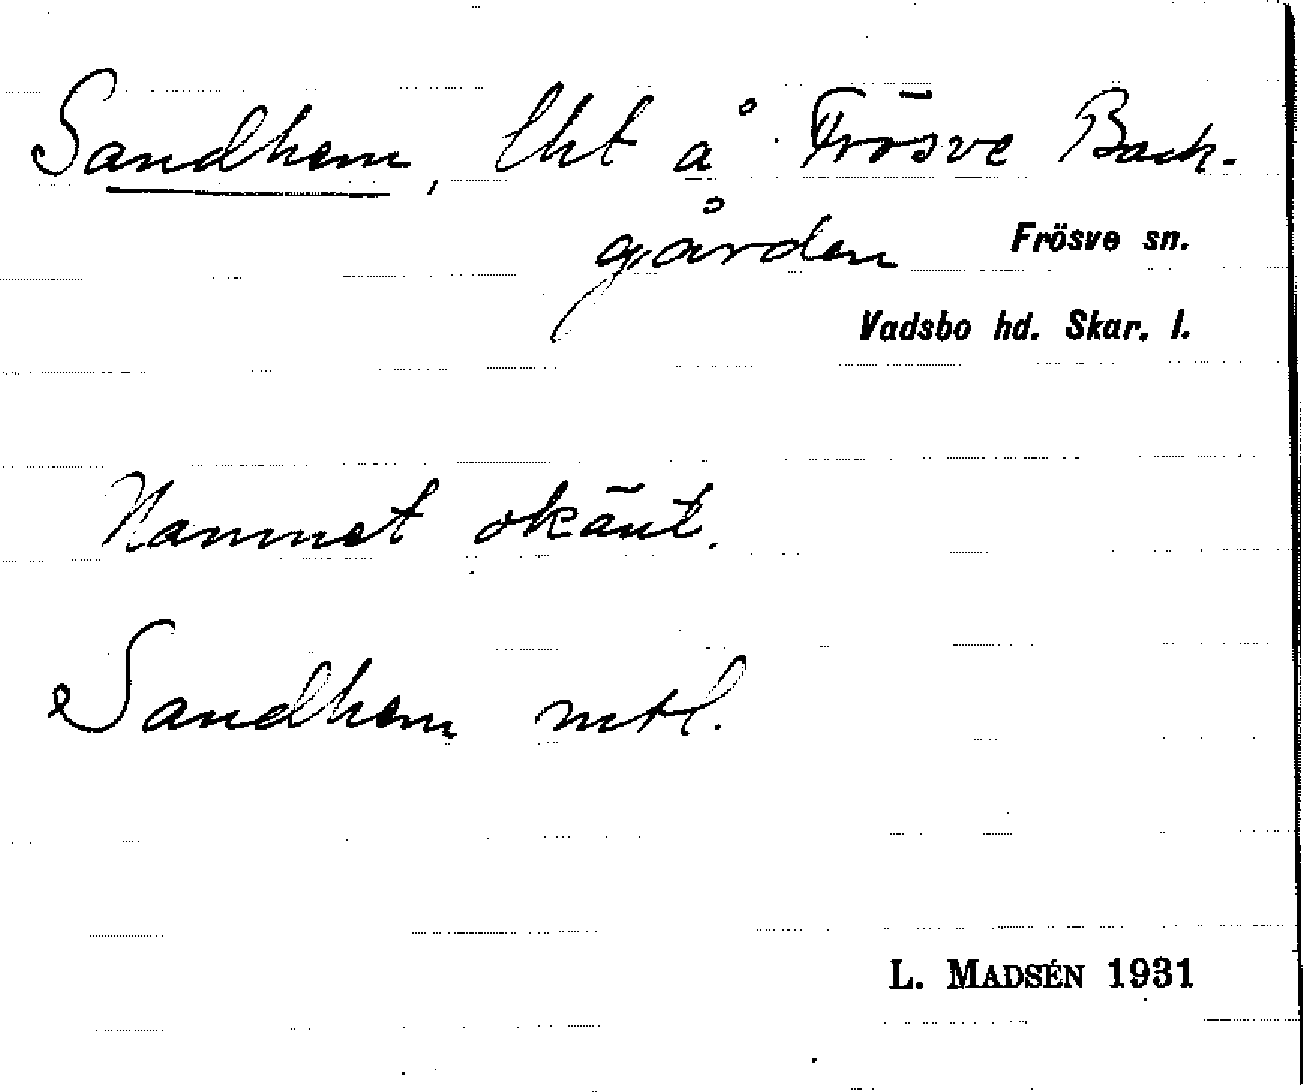 Sandhem, lht å Frösve Back-
gården
Frösve sn.
Vadsbo hd. Skar. l.
Namnet okänt.
Sandhem mtl.
L. MADSÉN 1931